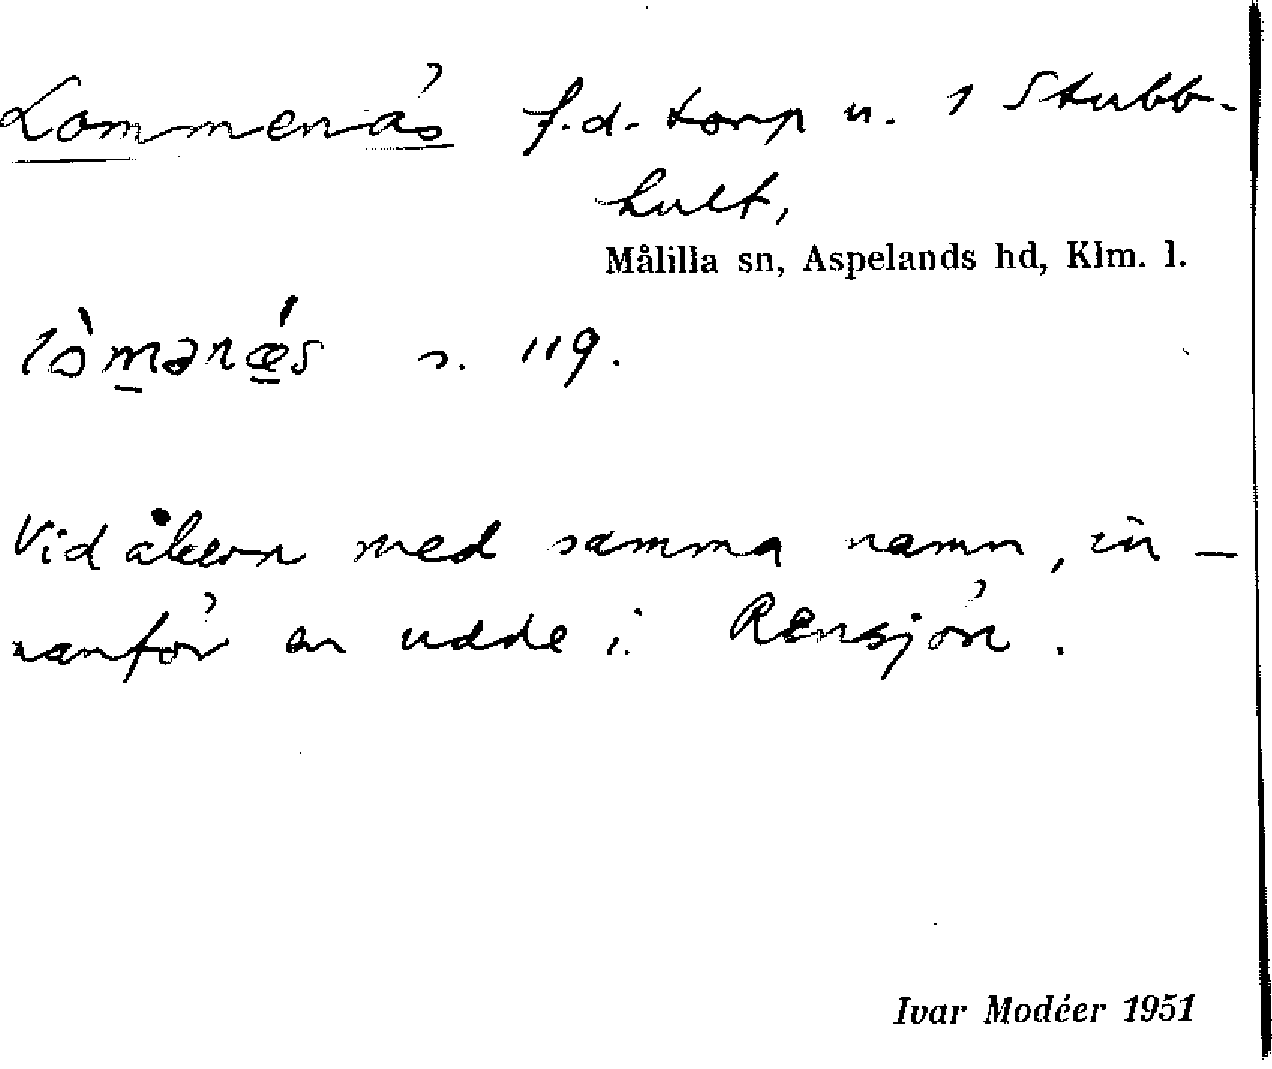 Lommenäs f.d. torp u. 1 Stubb-
hult,
Målilla sn, Aspelands hd, Klm. l.
lòmənǽs s. 119.
Vid åkern med samma namn, in-
nanför en udde i Rensjön.
Ivar Modéer 1951